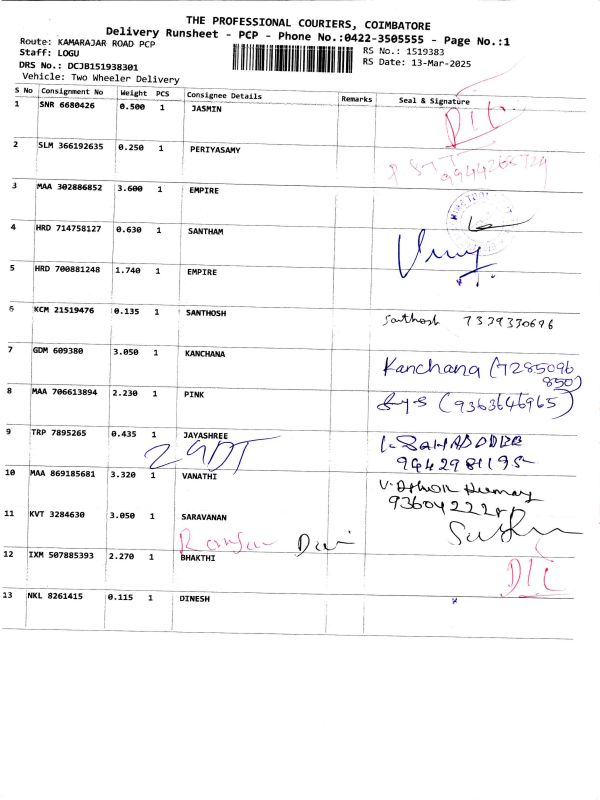 THE PROFESSIONAL COURIERS, COIMBATORE
Delivery Runsheet - PCP - Phone No.:0422-3505555 - Page No.:1
Route: KAMARAJAR ROAD PCP RS No.: 1519383
Staff: LOGU RS Date: 13-Mar-2025
DRS No.: DCJB151938301
Vehicle: Two Wheeler Delivery
S No Consignment No Weight PCS Consignee Details Remarks Seal & Signature
1 SNR 6680426 0.500 1 JASMIN
D/L
2 SLM 366192635 0.250 1 PERIYASAMY
9944268729
3 MAA 302886852 3.600 1 EMPIRE
4 HRD 714758127 0.630 1 SANTHAM
5 HRD 700881248 1.740 1 EMPIRE
6 KCM 21519476 0.135 1 SANTHOSH
Santhosh 7339330696
7 GDM 609380 3.050 1 KANCHANA
Kanchana (7285096
850)
8 MAA 706613894 2.230 1 PINK
(9363646965)
9 TRP 7895265 0.435 1 JAYASHREE
10 MAA 869185681 3.320 1 VANATHI
11 KVT 3284630 3.050 1 SARAVANAN
12 IXM 507885393 2.270 1 BHAKTHI
D/L
13 NKL 8261415 0.115 1 DINESH